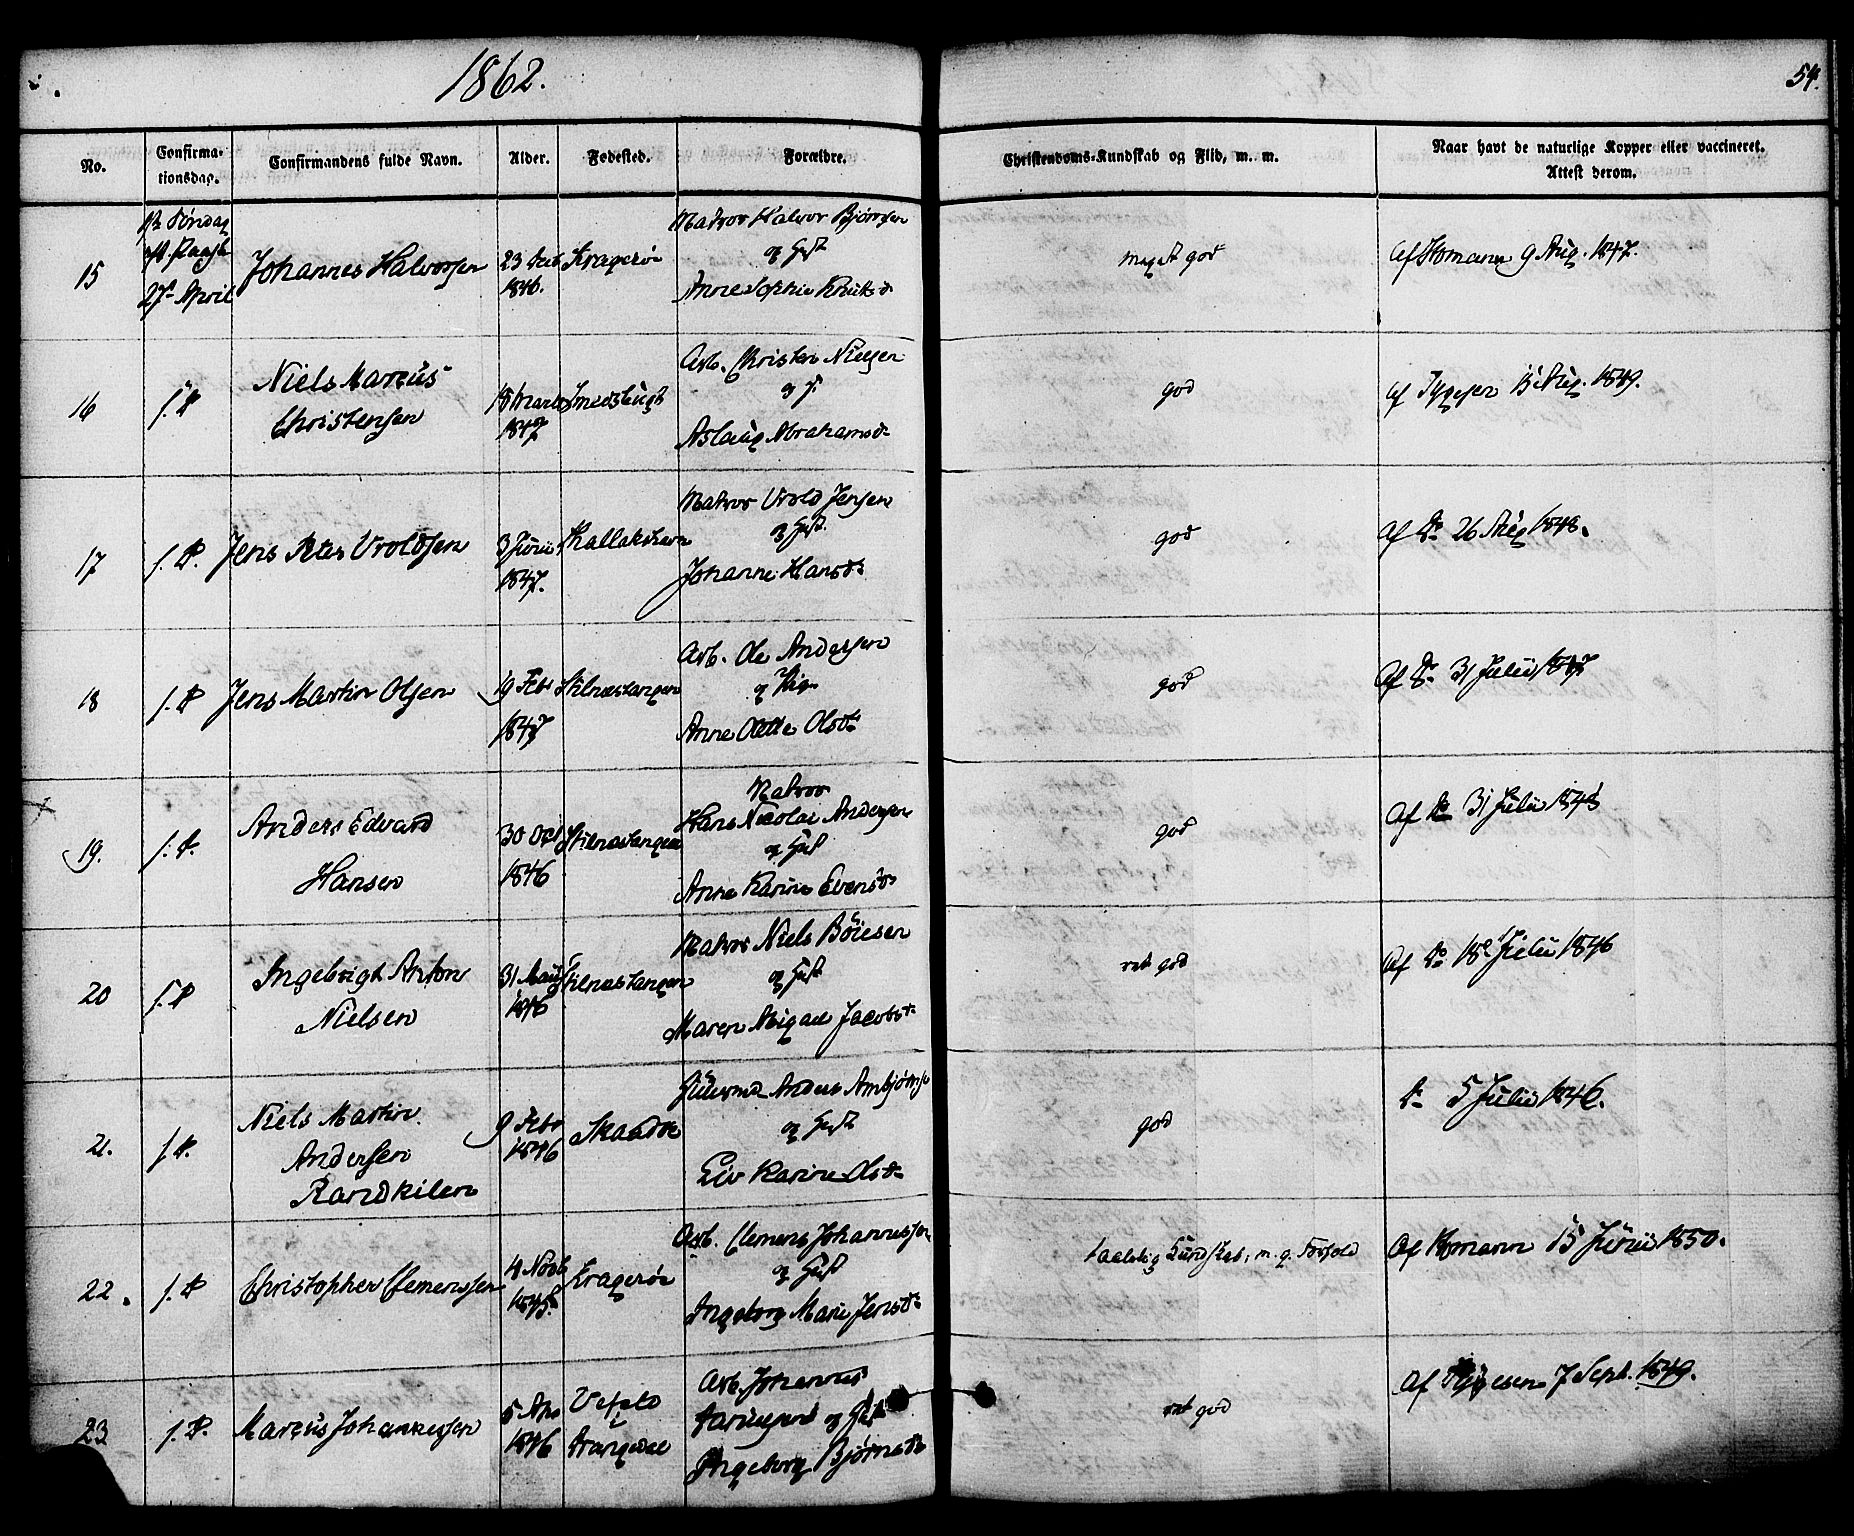 1862.
54.
No.
Confirma-
tionsdag.
Confirmandens fulde Navn.
Alder.
Fødested.
Forældre.
Christendoms-Kundskab og Flid, m. m.
Naar havt de naturlige Kopper eller vaccineret.
Attest derom.
15
Søndag
27 April
Johannes Halvorsen
23
1846.
Kragerøe
Matros Halvor Bjørnsen
og Hust
Anne Sophie Knutsd
meget god
Af Homann 9 Aug. 1847.
16
Niels Marcus
Christensen
18 Marts
1847
Smedsbugt
Arb. Christen Nielsen
Aslaug Abrahamsd
god
af Tygesen 15 Aug. 1849.
17
Jens Peter Vroldsen
3 Juni
1847.
Matros Vrold Jensen
og Hust.
Johanne Hansd
god
Af Do 26 Aug 1848.
18
Jens Martin Olsen
19 Feb
1847
Stilnæstangen
Arb. Ole Andersen
og Pig
Anne Olette Olsd
god
Af Do 31 Juli 1847
19.
Anders Edvard
Hansen
30 Oct
1846
Stilnæstangen
Matros
Hans Nicolai Andersen
og Hust
Anne Karine Evensd
god
Af Do 31 Juli 1848
20
Ingebrigt Anton
Nielsen
31 May
1846
Stilnæstangen
Matros Niels Böiesen
og Hust
Maren Abigael Jacobsd
ret god
Af Do 18 Juli 1846
21.
Niels Martin
Andersen
Randkilen
9 Feb
1846
Skaadøe
Anders Ambjørns
og Hust
Liv Karine Olsd
god
Do 5 Juli 1846.
22.
Christopher Clemensen
4 Novb
1845.
Kragerøe
Arb. Clemens Johannessen
og Hust
Ingeborg Marie Jensd
taalelig Kundskab, m. g. Forhold
Af Homann 15 Juni 1850.
23
Marcus Johannessen
5 Apr
1846
i
Drangedal
Arb. Johannes
og Hust
Ingeborg Bjørnsd
ret god
Af Tygesen 7 Sept. 1849.